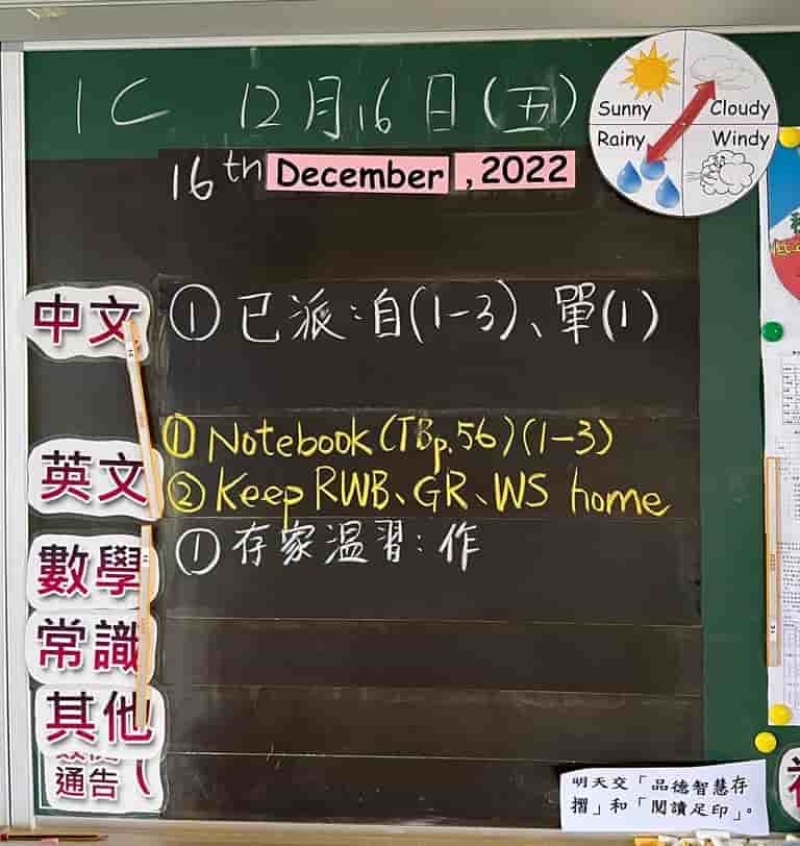 1C 12月16日(五)
16th December, 2022
Sunny Cloudy
Rainy Windy
中文 ① 已派：自(1-3)、單(1)
英文 ① Notebook (TB p.56) (1-3)
② Keep RWB、GR、WS home
數學 ① 存家溫習：作
常識
其他
通告(
明天交「品德智慧存
摺」和「閱讀足印」。